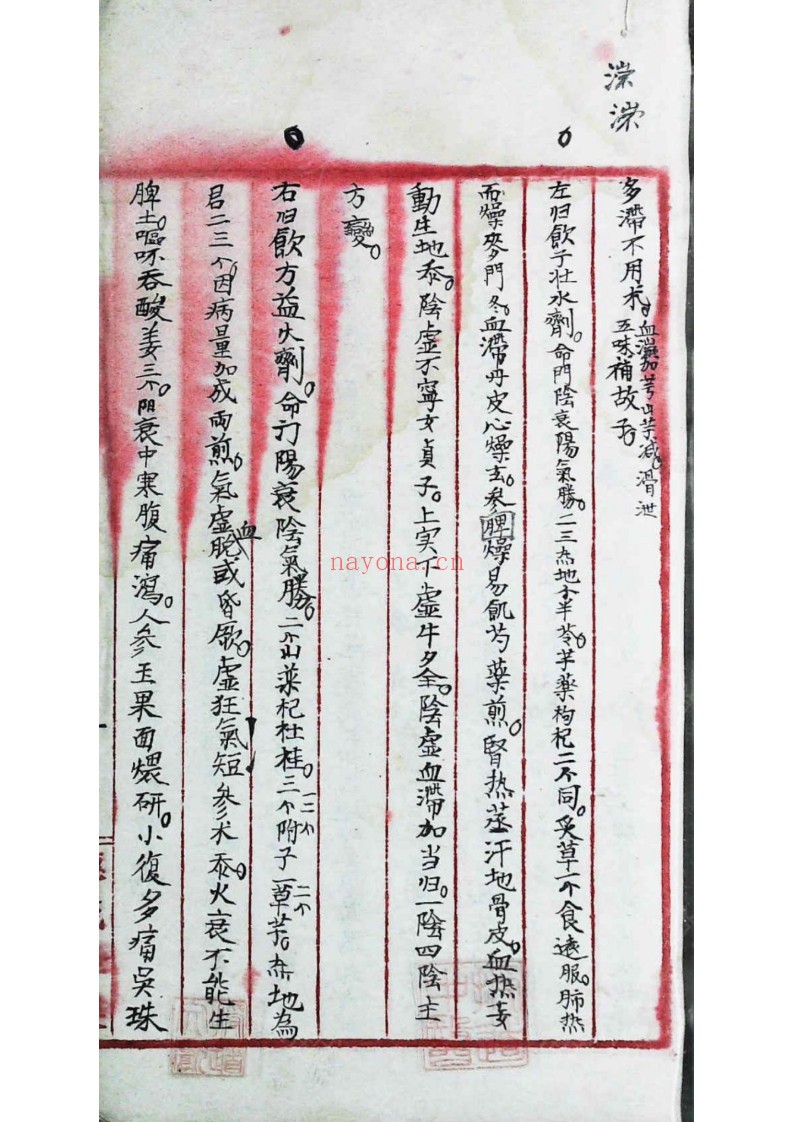 滐滐
多滞不用朮。血滞加芎山芋减。滑泄
五味補故子。
左归飲子壮水劑。命門陰衰陽氣勝。二三熟地小半苓。芋藥枸杞二个同。炙草一个食遠服。肺热
而燥麥門冬。血滞丹皮心燥玄。參脾燥易飢芍藥煎。腎热蒸汗地骨皮。血热妄
動生地黍。陰虚不寧女貞子。上实下虚牛夕全。陰虚血滞加当归。一陰四陰主
方變。
右归飲方益火劑。命门陽衰陰氣勝。二个山萊杞杜桂。三个附子一二个草芋。二个熟地為
君二三个。因病量加成两煎。氣虚血脱或昏厥。虚狂氣短參术黍。火衰不能生
脾土。嘔吥吞酸姜三个。阴衰中寒腹痛瀉。人參玉果面煨研。小復多痛吳珠
nayona.cn